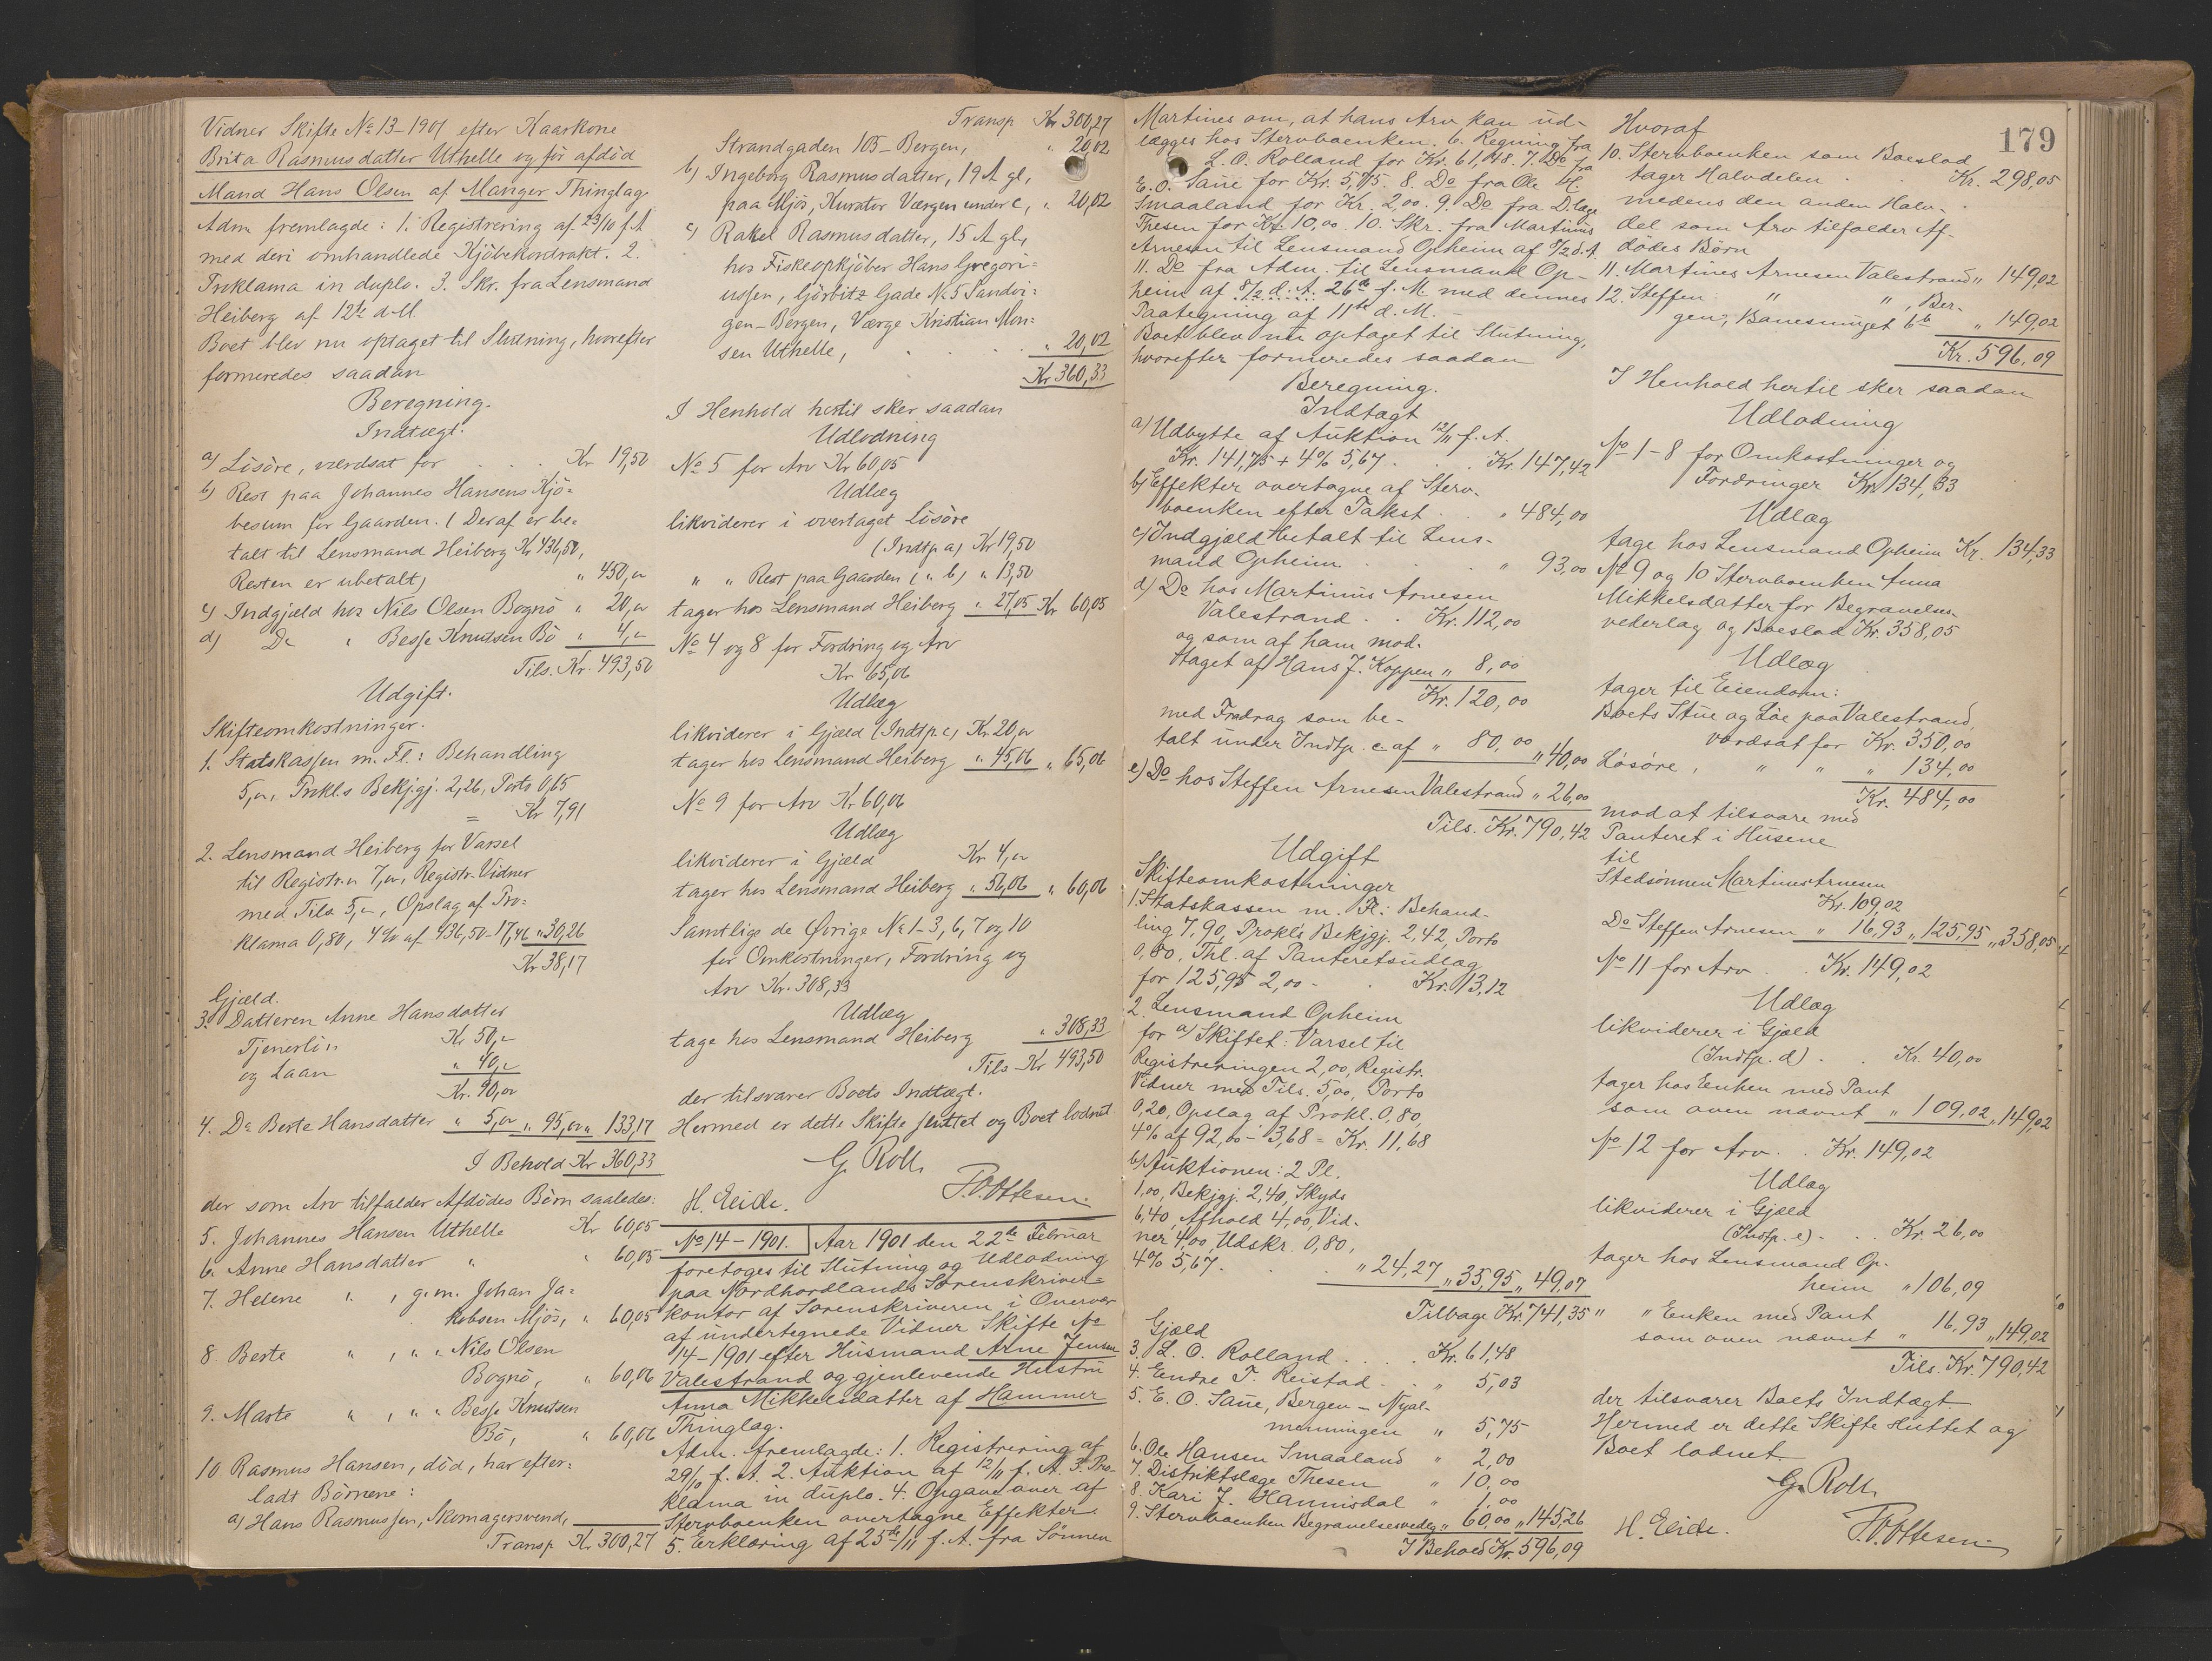 Vidner Skifte No 13-1901 efter Kaarkone
Brita Rasmusdatter Uthelle og før afdød
Mand Hans Olsen af Manger Thinglag
Adm. fremlagde: 1. Registrering af 23/10 f.A
med deri omhandlede Kjøbekontrakt. 2.
Proklama in duplo. 3. Skr. fra Lensmand
Heiberg af 12te d.M.
Boet blev nu optaget til Slutning, hvorefter
formeredes saadan
Beregning.
Indtægt.
a) Løsøre, værdsat for . . . Kr 19,50
b) Rest paa Johannes Hansens Kjø-
besum for Gaarden. (Deraf er be-
talt til Lensmand Heiberg Kr 436,50,
Resten er ubetalt) " 450,"
c) Indgjæld hos Nils Olsen Bognø " 20,"
d) Do " Besse Knutsen Bø " 4,"
Tils. Kr. 493,50
Udgift.
Skifteomkostninger.
1. Statskassen m. Fl.: Behandling
5,", Prokl.s Bekjgj. 2,26, Porto 0,65
= Kr 7,91
2. Lensmand Heiberg for Varsel
til Registr.n 7,", Registr. Vidner
med Tils. 5,", Opslag af Pro-
klama 0,80, 4% af 436,50 - 17,46 " 30,26
Kr 38,17
Gjæld.
3. Datteren Anne Hansdatter
Tjenerløn Kr 50,"
og Laan " 40,"
Kr. 90,"
4. Do Berte Hansdatter " 5," " 95," " 133,17
I Behold Kr 360,33
der som Arv tilfalder Afdødes Børn saaledes:
5. Johannes Hansen Uthelle Kr 60,05
6. Anne Hansdatter " " 60,05
7. Helene " " , g.m. Johan Ja-
kobsen Mjøs, " 60,05
8. Berte " , " " Nils Olsen
Bognø, " 60,06
9. Marte " , " " Besse Knutsen
Bø, " 60,06
10 Rasmus Hansen, død, har efter-
ladt Børnene:
a) Hans Rasmussen, Skomagersvend,
Transp. Kr 300,27
Transp Kr 300,27
Strandgaden 105 - Bergen, " 20,02
b) Ingeborg Rasmusdatter, 19 A gl,
paa Mjøs, Kurator Værgen under c, " 20,02
c) Rakel Rasmusdatter, 15 A gl,
hos Fiskeopkjøber Hans Gregori-
ussen, Gørbitz Gade No 5 Sandvi-
gen - Bergen, Værge Kristian Mon-
sen Uthelle, . . . " 20,02
Kr 360,33
I Henhold hertil sker saadan
Udlodning
No 5 for Arv Kr 60,05
Udlæg
likviderer i overtaget Løsøre
(Indtp a) Kr 19,50
" " Rest paa Gaarden ( " b) " 13,50
tager hos Lensmand Heiberg " 27,05 Kr 60,05
No 4 og 8 for Fordring og Arv
Kr 65,06
Udlæg
likviderer i Gjæld (Indtp c) Kr 20,"
tager hos Lensmand Heiberg " 45,06 " 65,06
No 9 for Arv Kr 60,06
Udlæg
likviderer i Gjæld Kr 4,"
tager hos Lensmand Heiberg " 56,06 " 60,06
Samtlige de Øvrige No 1-3, 6, 7 og 10
for Omkostninger, Fordring og
Arv Kr. 308,33
Udlæg
tage hos Lensmand Heiberg " 308,33
Tils. Kr 493,50
der tilsvarer Boets Indtægt.
Hermed er dette Skifte sluttet og Boet lodnet
G. Roll,
H. Eide. P.O. Ottesen.
No 14 - 1901. Aar 1901 den 22de Februar
foretoges til Slutning og Udlodning
paa Nordhordlands Sorenskriver-
kontor af Sorenskriveren i Overvær
af undertegnede Vidner Skifte No
14-1901 efter Husmand Arne Jensen
Valestrand og gjenlevende Hustru
Anna Mikkelsdatter af Hammer
Thinglag.
Adm. fremlagde: 1. Registrering af
29/10 f.A. 2. Auktion af 12/11 f.A. 3. Pro-
klama in duplo. 4. Opgave over af
Stervboenken overtagne Effekter.
5. Erklæring af 25de/11 f.A. fra Sønnen
Martines om, at hans Arv kan ud-
lægges hos Stervboenken. 6. Regning fra
L. O. Rolland for Kr. 61,48. 7. Do fra
E. O. Saue for Kr. 5,75. 8. Do fra Ole H.
Smaaland for Kr. 2,00. 9. Do fra D.læge
Thesen for Kr. 10,00. 10. Skr. fra Martinus
Arnesen til Lensmand Opheim af /2 d.A.
11. Do fra Adm. til Lensmand Op-
heim af 8/2 d.A. 26de f.M. med dennes
Paategning af 11te d.M. -
Boet blev nu optaget til Slutning,
hvorefter formeredes saadan
Beregning.
Indtægt
a) Udbytte af Auktion 12/11 f.A.
Kr. 141,75 + 4% 5,67 . . Kr. 147,42
b) Effekter overtagne af Sterv-
boenken efter Takst . . " 484,00
c) Indgjæld betalt til Lens-
mand Opheim . . . " 93,00
d) Do hos Martinus Arnesen
Valestrand . . Kr. 112,00
og som af ham mod-
taget af Hans J. Koppen " 8,00
Kr. 120,00
med Fradrag som be-
talt under Indtp. c af " 80,00 " 40,00
e) Do hos Steffen Arnesen Valestrand " 26,00
Tils. Kr. 790,42
Udgift
Skifteomkostninger
1. Statskassen m. Fl: Behand-
ling 7,90, Prokl.s Bekjgj. 2,42, Porto
0,80, Thl. af Panteretsudlæg
for 125,95 2,00 - . Kr. 13,12
2. Lensmand Opheim
for a) Skiftet: Varsel til
Registreringen 2,00, Registr.
Vidner med Tils. 5,00, Porto
0,20, Opslag af Prokl. 0,80,
4% af 92,00 - 3,68 = Kr. 11,68
b) Auktionen: 2 Pl.
1,00, Bekjgj. 2,40, Skyds
6,40, Afhold 4,00, Vid-
ner 4,00, Udskr. 0,80,
4% 5,67 . . " 24,27 " 35,95 " 49,07
Tilbage Kr. 741,35
Gjæld
3. L. O. Rolland . . . Kr. 61,48
4. Endre T. Reistad . . " 5,03
5. E. O. Saue, Bergen - Nyal-
menningen " 5,75
6. Ole Hansen Smaaland " 2,00
7. Distriktslæge Thesen " 10,00
8. Kari J. Hannisdal " 1,00
9. Stervboenken Begravelsesvedlg " 60,00 " 145,26
I Behold Kr. 596,09
179
Hvoraf
10. Stervboenken som Boeslod
tager Halvdelen . . Kr. 298,05
medens den anden Halv-
del som Arv tilfalder Af-
dødes Børn
11. Martines Arnesen Valestrand " 149,02
12. Steffen " " , Ber-
gen, Banesmuget 6b " 149,02
Kr. 596,09
I Henhold hertil sker saadan
Udlodning
No 1-8 for Omkostninger og
Fordringer Kr. 134,33
Udlæg
tage hos Lensmand Opheim Kr. 134,33
No 9 og 10 Stervboenken Anna
Mikkelsdatter for Begravelses-
vederlag og Boeslod Kr. 358,05
Udlæg
tager til Eiendom:
Boets Stue og Løe paa Valestrand,
værdsat for Kr. 350,00
Løsøre, " " " 134,00
Kr. 484,00
mod at tilsvare med
Panteret i Husene
til
Stedsønnen Martines Arnesen
Kr. 109,02
Do Steffen Arnesen " 16,93 " 125,95 " 358,05
No 11 for Arv . . Kr. 149,02
Udlæg
likviderer i Gjæld
(Indtp. d) . . Kr. 40,00
tager hos Enken med Pant
som oven nævnt " 109,02 " 149,02
No 12 for Arv . . Kr. 149,02
Udlæg
likviderer i Gjæld
(Indtp. e) . . Kr. 26,00
tager hos Lensmand Op-
heim " 106,09
" " Enken med Pant
som oven nævnt " 16,93 " 149,02
Tils. Kr. 790,42
der tilsvarer Boets Indtægt.
Hermed er dette Skifte sluttet og
Boet lodnet.
G. Roll,
H. Eide. P.O. Ottesen